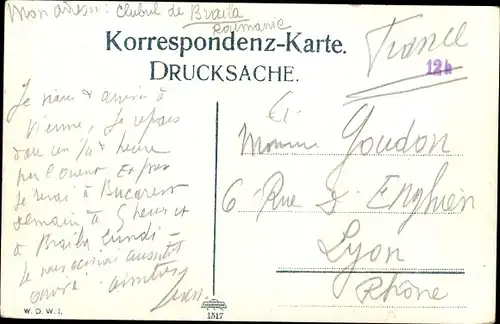 Mon adresse : Clubul de Braila
Roumanie
Korrespondenz-Karte.
DRUCKSACHE.
France
12h
Je viens d'arriver à
Vienne, Je repars
dans un 1/4 heure
par l'orient Ex
Je serai à Bucarest
demain à 9 heures et
à Braila lundi –
Je vous écrirai aussitôt
arrivé.
Jean.
Goudon
6 Rue d'Enghien
Lyon
Rhône
W. D. W. I.
1517